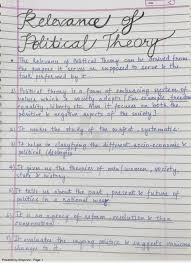 Relevance of
Political Theory
The relevance of Political Theory can be derived from
the purpose it serves or supposed to serve & the
task performed by it
1) Political theory is a form of embracing system of
values which a society adopts. For example, freedom
equality, liberty etc. Also it focuses on both the
positive & negative aspects of the society
2) It makes the study of the subject systematic
3) It helps in classifying the different socio-economic &
political ideologies
4) It gives us the theories of men/women, society,
state & history
5) It tells us about the past, present & future of
politics in a rational way
6) It is an agency of reform, revolution & then
conservation
7) It evaluates the ongoing politics & suggests various
changes to it